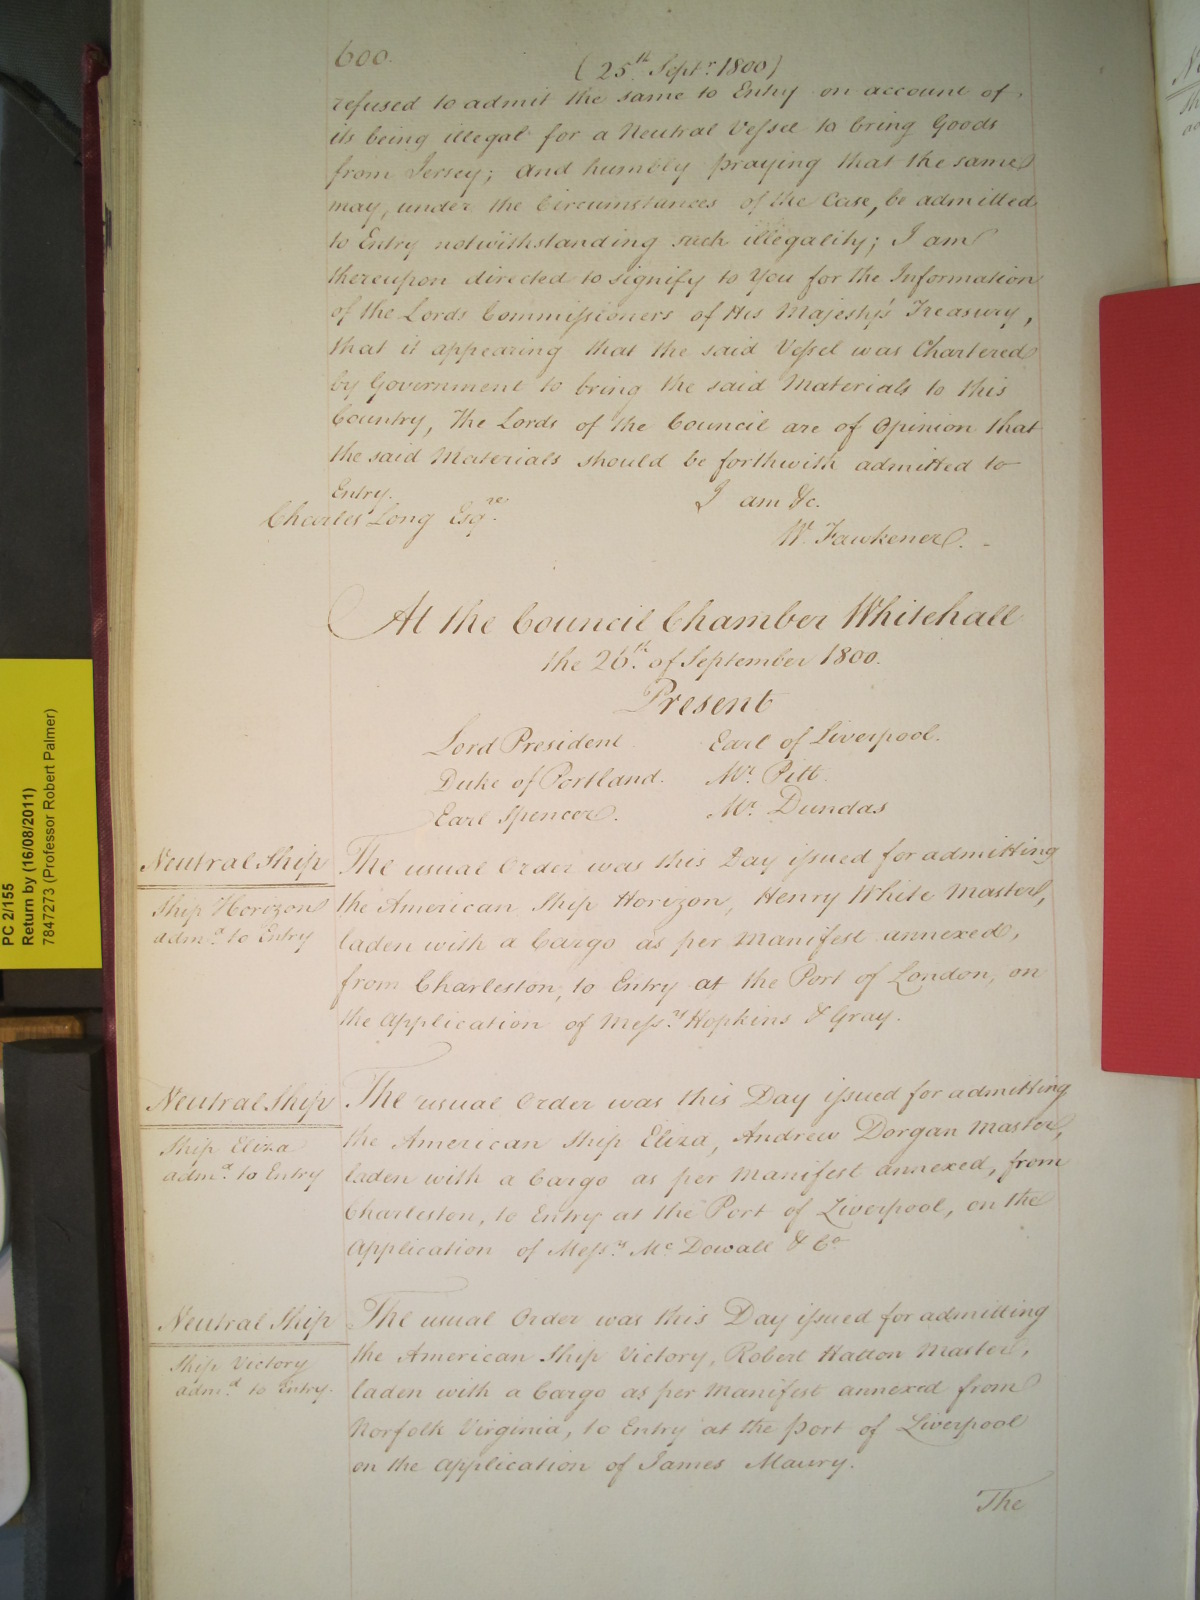 600.
(25th Septr. 1800)
refused to admit the same to Entry on account of
its being illegal for a Neutral Vessel to bring Goods
from Jersey; and humbly praying that the same
may, under the Circumstances of the Case, be admitted
to Entry notwithstanding such illegality; I am
thereupon directed to signify to You for the Information
of the Lords Commissioners of His Majesty's Treasury,
that it appearing that the said Vessel was Chartered
by Government to bring the said Materials to this
Country, The Lords of the Council are of Opinion that
the said Materials should be forthwith admitted to
Entry.
I am &c.
Charles Long Esqre.
W. Fawkener. -
At the Council Chamber Whitehall
the 26th. of September 1800.
Present
Lord President Earl of Liverpool.
Duke of Portland. Mr. Pitt.
Earl Spencer. Mr. Dundas
Neutral Ship
Ship Horizon
admd. to Entry
The usual Order was this Day issued for admitting
the American Ship Horizon, Henry White Master,
laden with a Cargo as per Manifest annexed,
from Charleston, to Entry at the Port of London, on
the Application of Messrs. Hopkins & Gray.
Neutral Ship
Ship Eliza
admd. to Entry
The usual Order was this Day issued for admitting
the American Ship Eliza, Andrew Dorgan Master,
laden with a Cargo as per Manifest annexed, from
Charleston, to Entry at the Port of Liverpool, on the
Application of Messrs. Mc Dowall & Co
Neutral Ship
Ship Victory
admd. to Entry.
The usual Order was this Day issued for admitting
the American Ship Victory, Robert Hatton Master,
laden with a Cargo as per Manifest annexed from
Norfolk Virginia, to Entry at the Port of Liverpool
on the Application of James Maury.
The
PC 2/155
Return by (16/08/2011)
7847273 (Professor Robert Palmer)